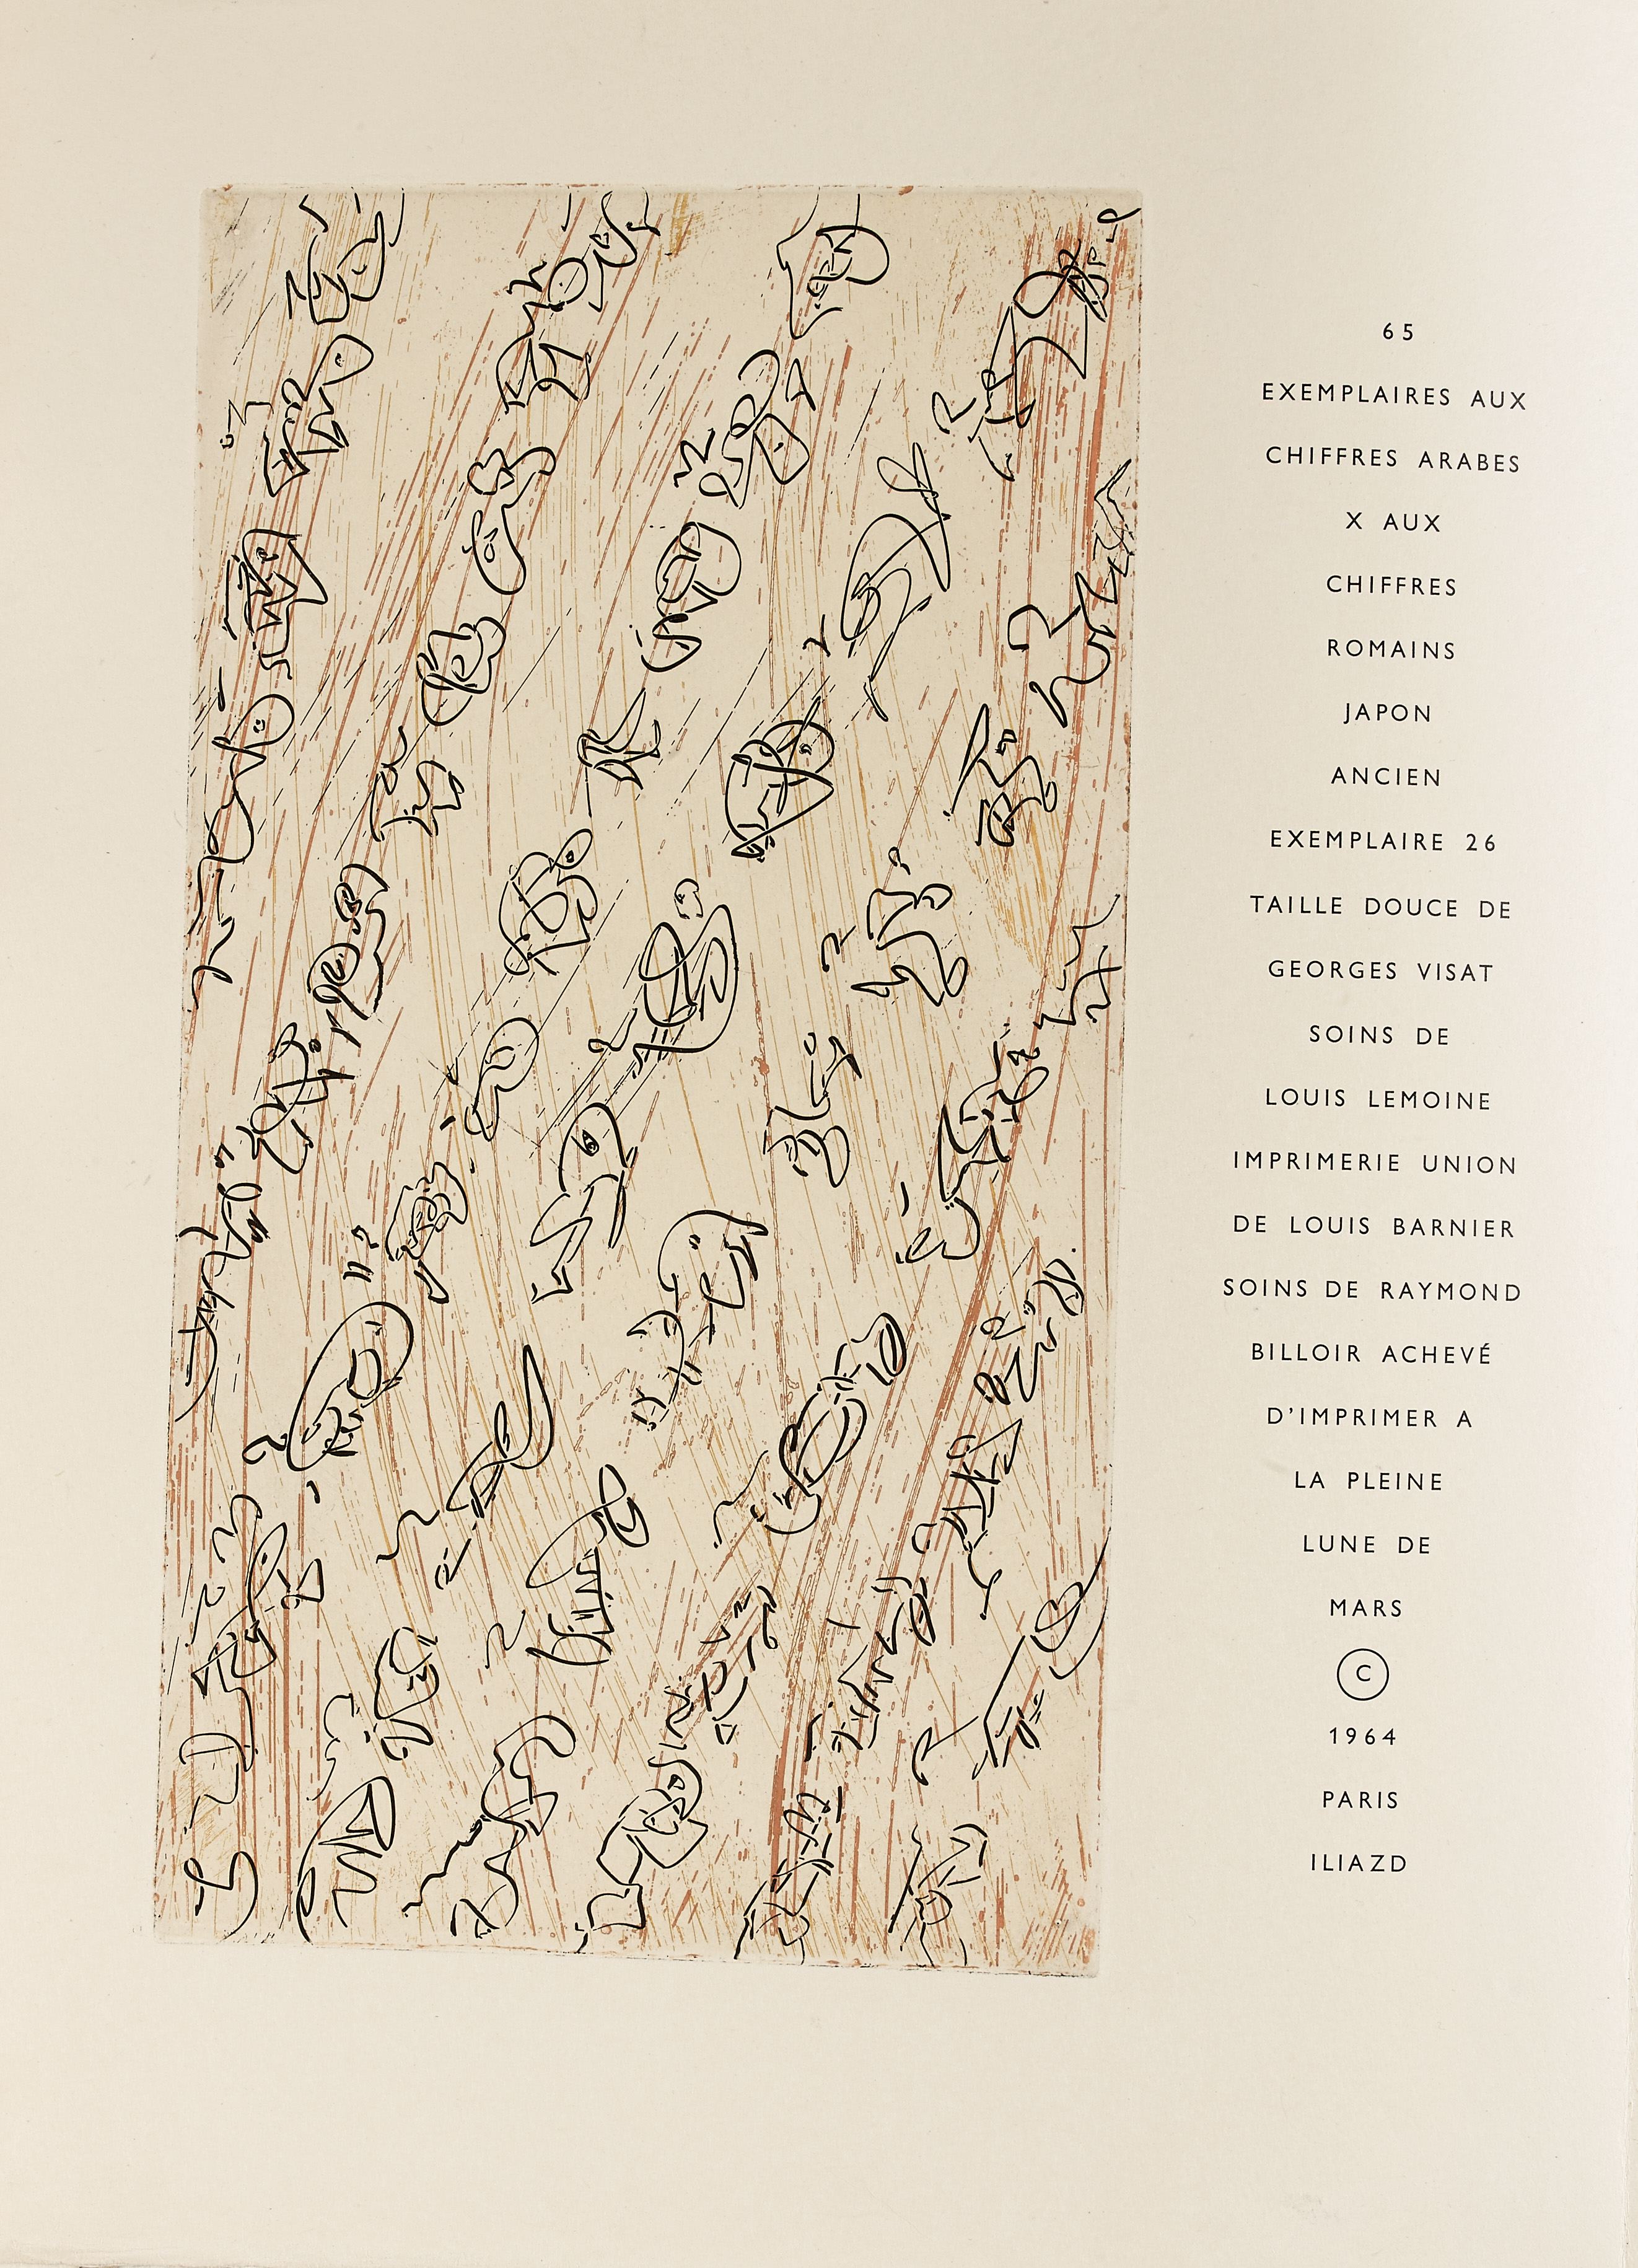 65
EXEMPLAIRES AUX
CHIFFRES ARABES
X AUX
CHIFFRES
ROMAINS
JAPON
ANCIEN
EXEMPLAIRE 26
TAILLE DOUCE DE
GEORGES VISAT
SOINS DE
LOUIS LEMOINE
IMPRIMERIE UNION
DE LOUIS BARNIER
SOINS DE RAYMOND
BILLOIR ACHEVÉ
D'IMPRIMER A
LA PLEINE
LUNE DE
MARS
©
1964
PARIS
ILIAZD